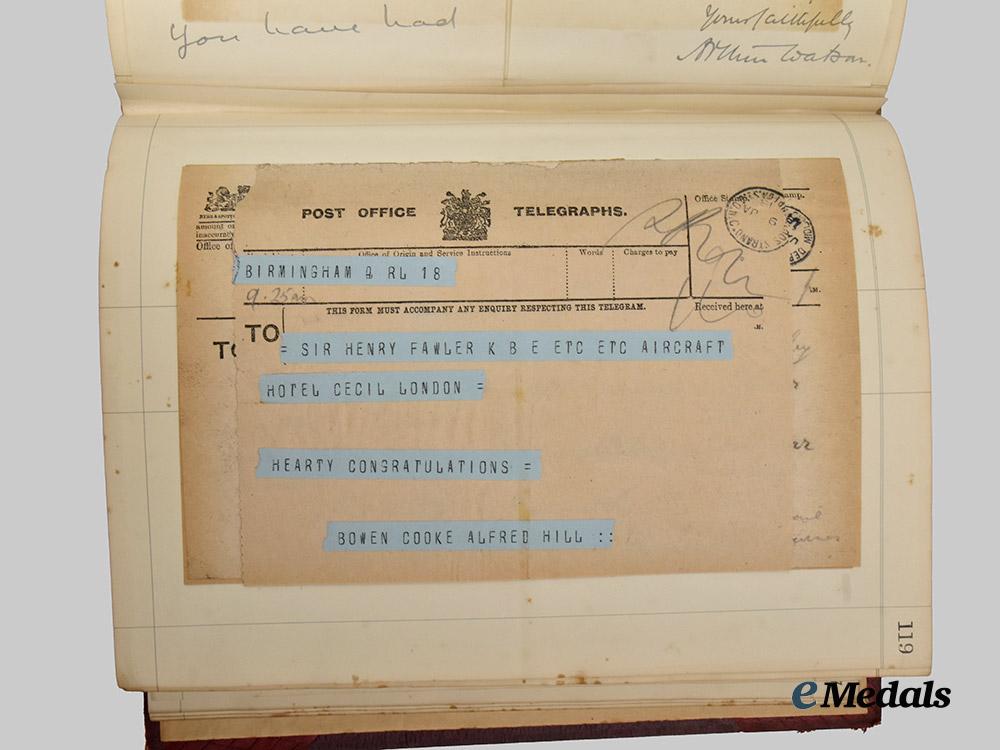 you have had
Yours faithfully
Arthur Watson.
POST OFFICE TELEGRAPHS.
Office Stamp.
amount or
inaccuracy
Office of
Office of Origin and Service Instructions
Words
Charges to pay
BIRMINGHAM Q RL 18
9.25am
THIS FORM MUST ACCOMPANY ANY ENQUIRY RESPECTING THIS TELEGRAM.
Received here at
TO
TO
= SIR HENRY FAWLER K B E ETC ETC AIRCRAFT
HOTEL CECIL LONDON =
HEARTY CONGRATULATIONS =
BOWEN COOKE ALFRED HILL ::
119
eMedals